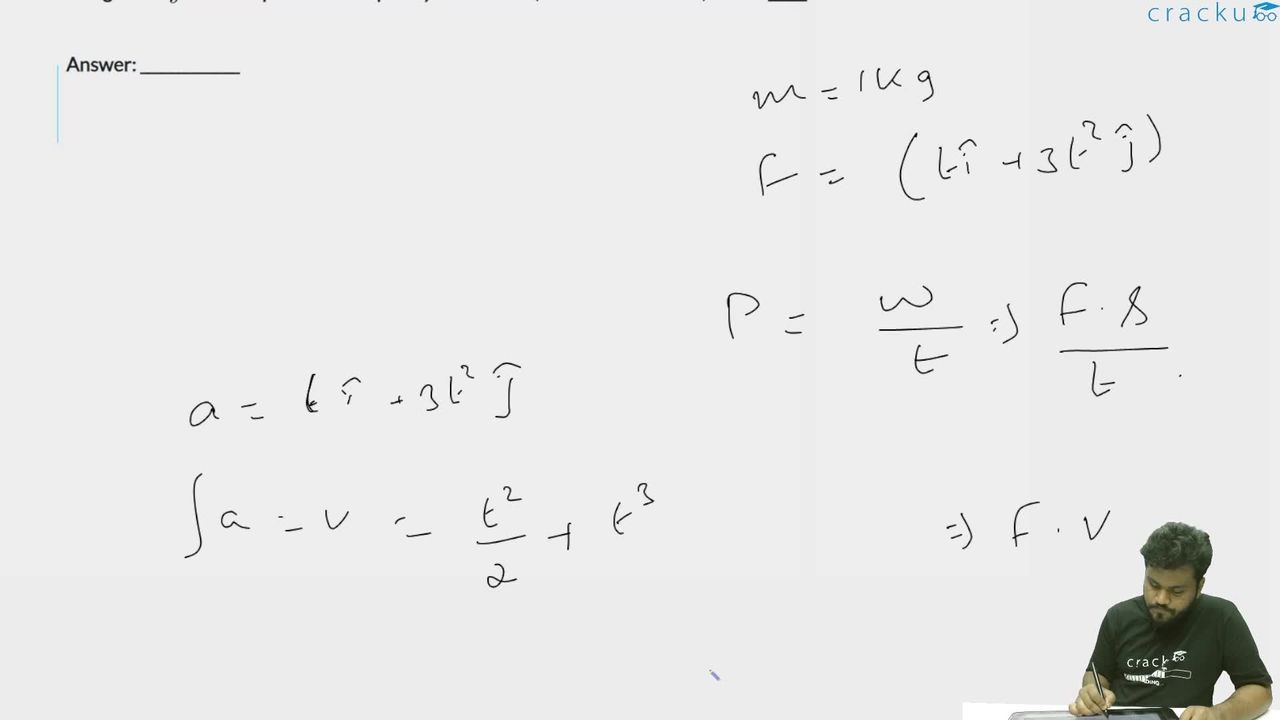 cracku
Answer: __________
m = 1kg
F = (tî + 3t² ĵ)
P = w/t ⇒ F.s/t .
a = t î + 3t² ĵ
∫a = v = t²/2 + t³
⇒ F . v
crack